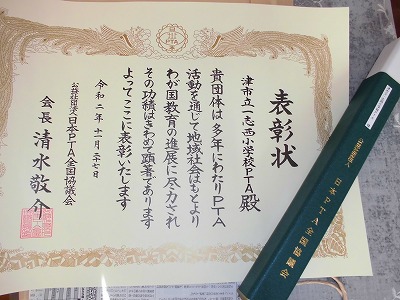 表彰状
津市立一志西小学校PTA殿
貴団体は多年にわたりPTA
活動を通じて地域社会はもとより
わが国教育の進展に尽力され
その功績はきわめて顕著であります
よってここに表彰いたします
令和二年十一月二十七日
公益社団法人日本PTA全国協議会
会長 清水敬介
公益社団法人 日本PTA全国協議会